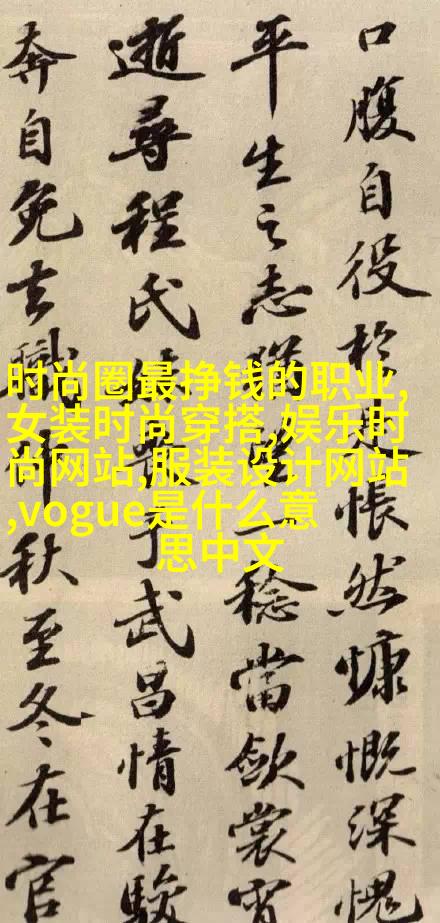 口腹自役於是悵然慷慨深愧
平生之志猶望一稔當斂裳宵
逝尋程氏妹喪于武昌情在駿
奔自免去職仲秋至冬在官
时尚圈最挣钱的职业,
女装时尚穿搭,娱乐时
尚网站,服装设计网站
,vogue是什么意
思中文